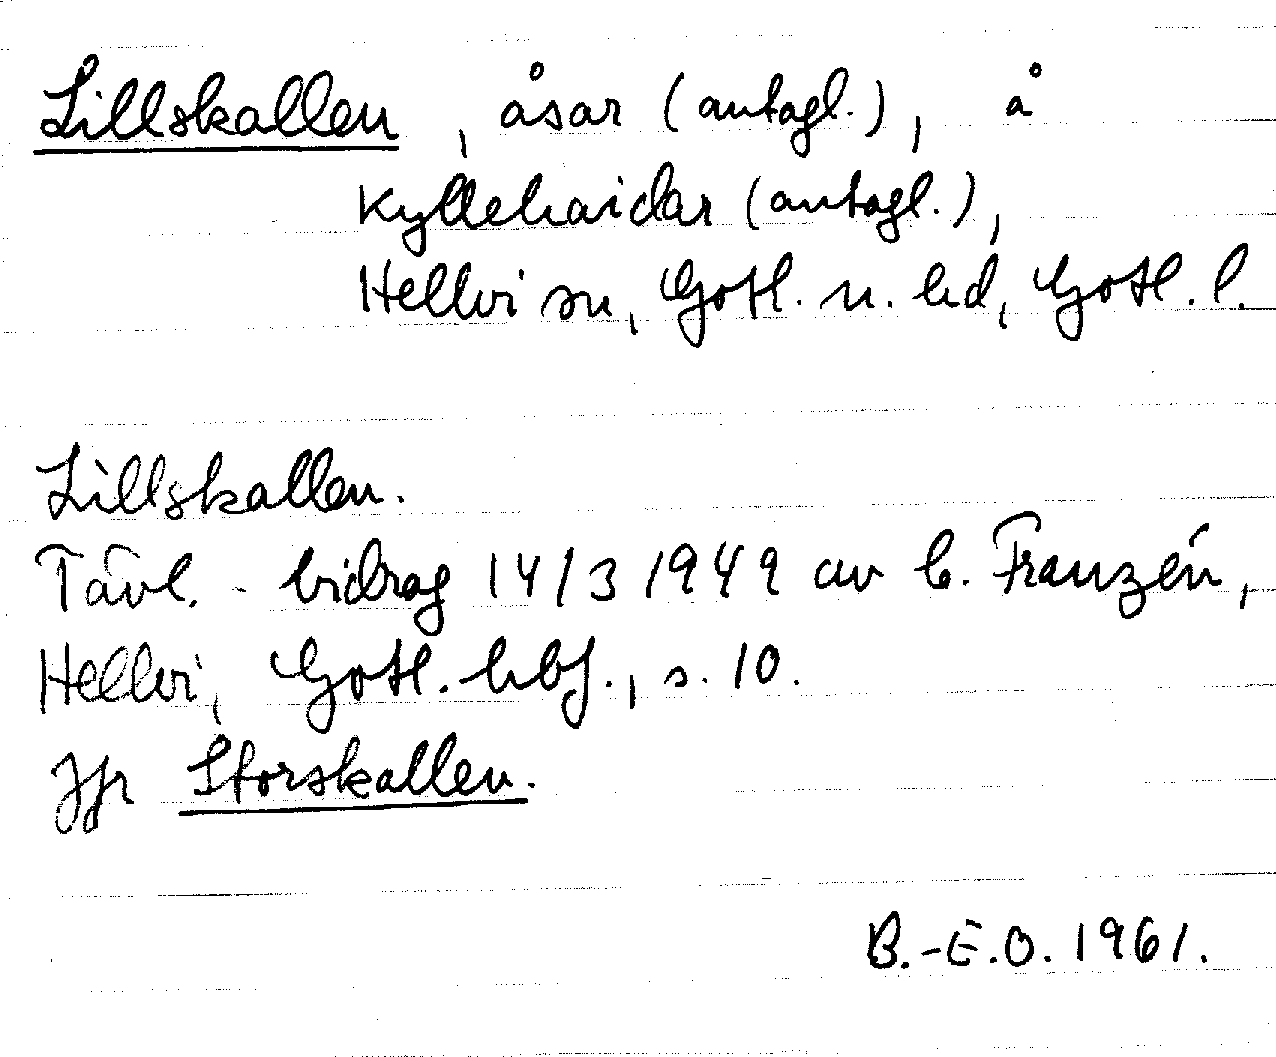 Lillskallen, åsar (antagl.), å
Kyllehaidar (antagl.),
Hellvi sn, Gotl. n. hd, Gotl. l.
Lillskallen.
Tävl.-bidrag 14/3 1949 av C. Franzén,
Hellvi, Gotl. hbf., s. 10.
Jfr Storskallen.
B.-E.O. 1961.